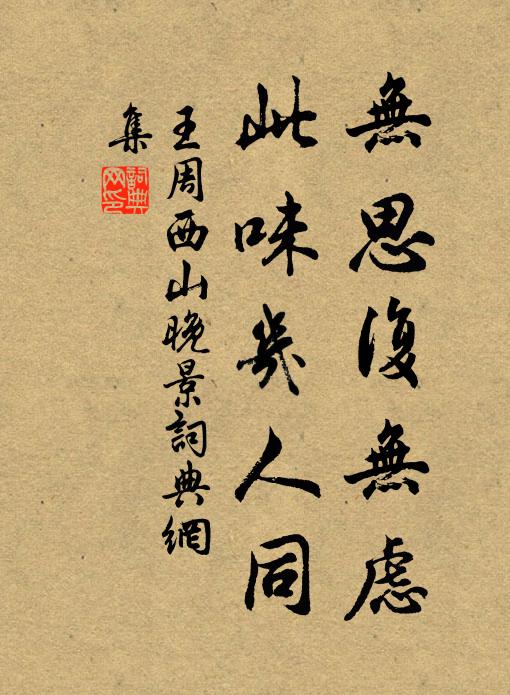 無思復無慮
此味幾人同
王周西山晚景詞典網
集
詞典
网印